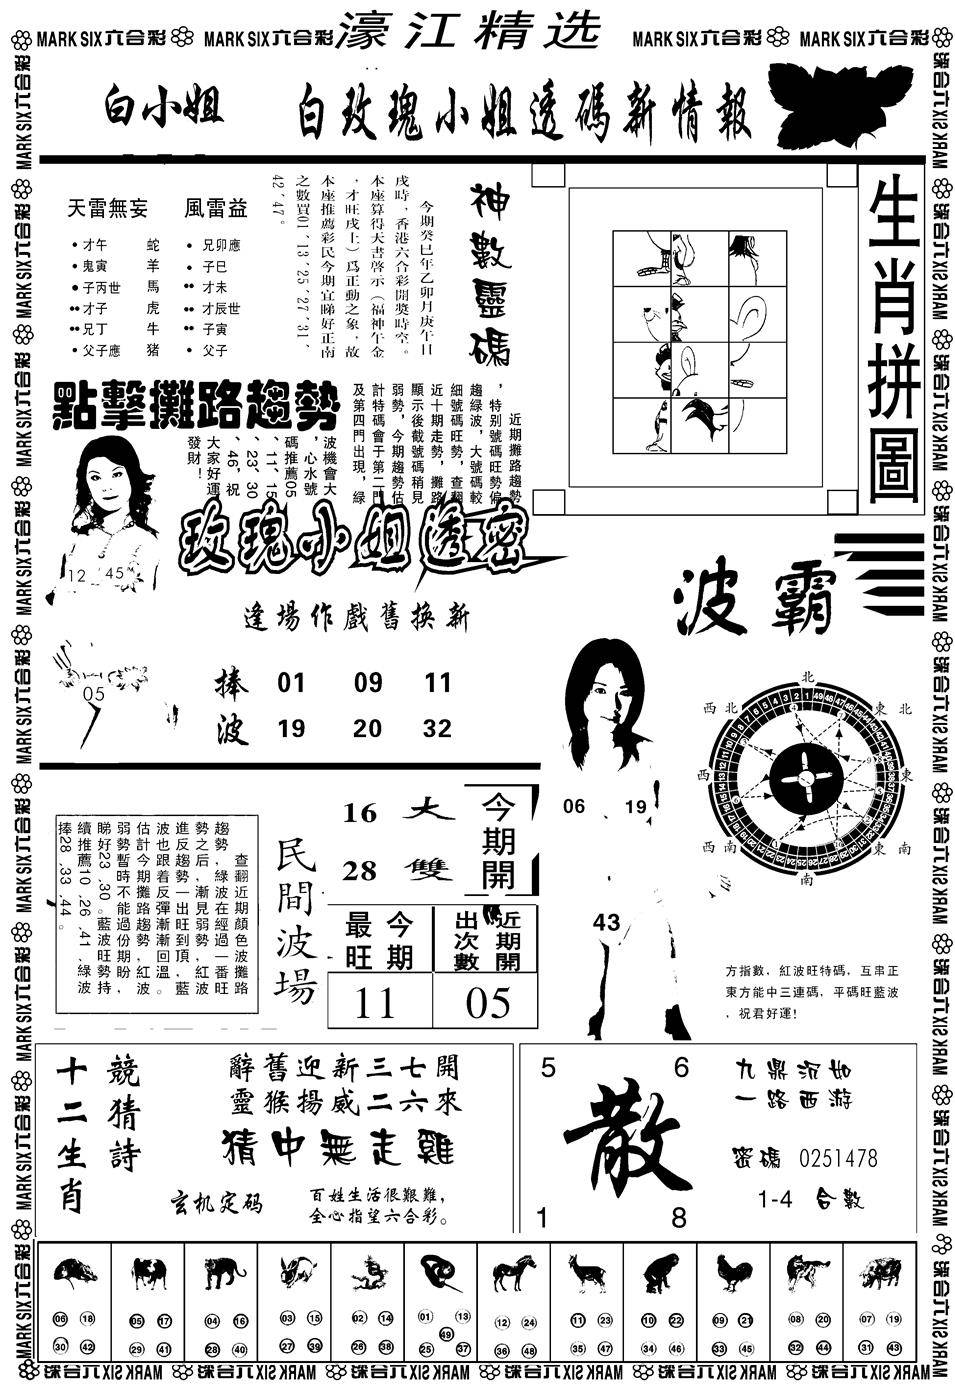 MARK SIX六合彩
MARK SIX六合彩
濠江精选
MARK SIX六合彩
MARK SIX六合彩
白小姐
白玫瑰小姐透碼新情報
天雷無妄
風雷益
才午 蛇
鬼寅 羊
子丙世 馬
才子 虎
兄丁 牛
父子應 猪
兄卯應
子巳
才未
才辰世
子寅
父子
神數靈碼
今期癸巳年乙卯月庚午日
戌時，香港六合彩開獎時空。
本座算得天書啓示（福神午金
，才旺戌上）爲正動之象，故
本座推薦彩民今期宜睇好正南
之數買01、13、25、27、31、
42、47。
生肖拼圖
點擊攤路趨勢
近期攤路趨勢
，特別號碼旺勢偏
趨綠波，大號碼較
細號碼旺勢，查翻
近十期走勢，攤路
顯示後截號碼稍見
弱勢，今期趨勢估
計特碼會于第二門
及第四門出現，綠
波機會大
，心水號
碼推薦05
、11、15
、23、30
、46，祝
大家好運
發財！
12 45
05
玫瑰小姐透密
逢場作戲舊換新
捧波
01 09 11
19 20 32
波霸
06 19
43
北
東北
東
東南
南
西南
西
西北
方指數，紅波旺特碼，互串正
東方能中三連碼，平碼旺藍波
，祝君好運！
查翻近期顏色波攤路
趨勢，綠波在經過一番旺
勢之后，漸見弱勢，紅波
進反趨勢一出旺到頂，藍
波也跟着反彈漸漸回溫。
估計今期攤路趨勢紅波
弱勢暫時不能過份期盼，
睇好23、30。藍波旺勢持
續推薦10、26、41、綠波
捧28、33、44。
民間波場
16 大
28 雙
今期開
最旺 今期
出次數 近期開
11
05
十二生肖
競猜詩
辭舊迎新三七開
靈猴揚威二六來
猜中無走雞
玄机定码
百姓生活很艱難，
全心指望六合彩。
5 6
散
1 8
九鼎沉如
一路西游
密碼 0251478
1-4 合數
06 18 30 42
05 17 29 41
04 16 28 40
03 15 27 39
02 14 26 38
01 13 49 25 37
12 24 36 48
11 23 35 47
10 22 34 46
09 21 33 45
08 20 32 44
07 19 31 43